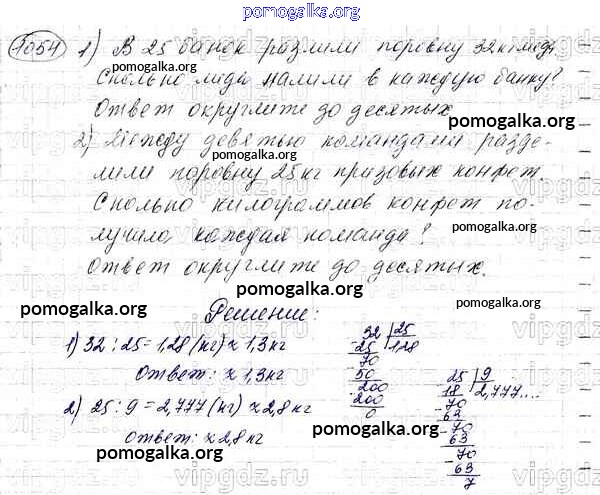 pomogalka.org
1054 1) В 25 банок разлили поровну 32 кг меда.
Сколько меда налили в каждую банку?
pomogalka.org
Ответ округлите до десятых
pomogalka.org
2) Между девятью командами разде-
pomogalka.org
лили поровну 25 кг призовых конфет.
Сколько килограммов конфет по-
pomogalka.org
лучила каждая команда?
pomogalka.org
Ответ округлите до десятых.
pomogalka.org
Решение:
pomogalka.org
1) 32 : 25 = 1,28 (кг) ≈ 1,3 кг
Ответ: ≈ 1,3 кг
2) 25 : 9 = 2,777 (кг) ≈ 2,8 кг
ответ: ≈ 2,8 кг
pomogalka.org
32 25
25 1,28
70
50
200
200
0
25 9
18 2,777....
70
63
70
63
70
63
7
pomogalka.org
vipgdz.ru